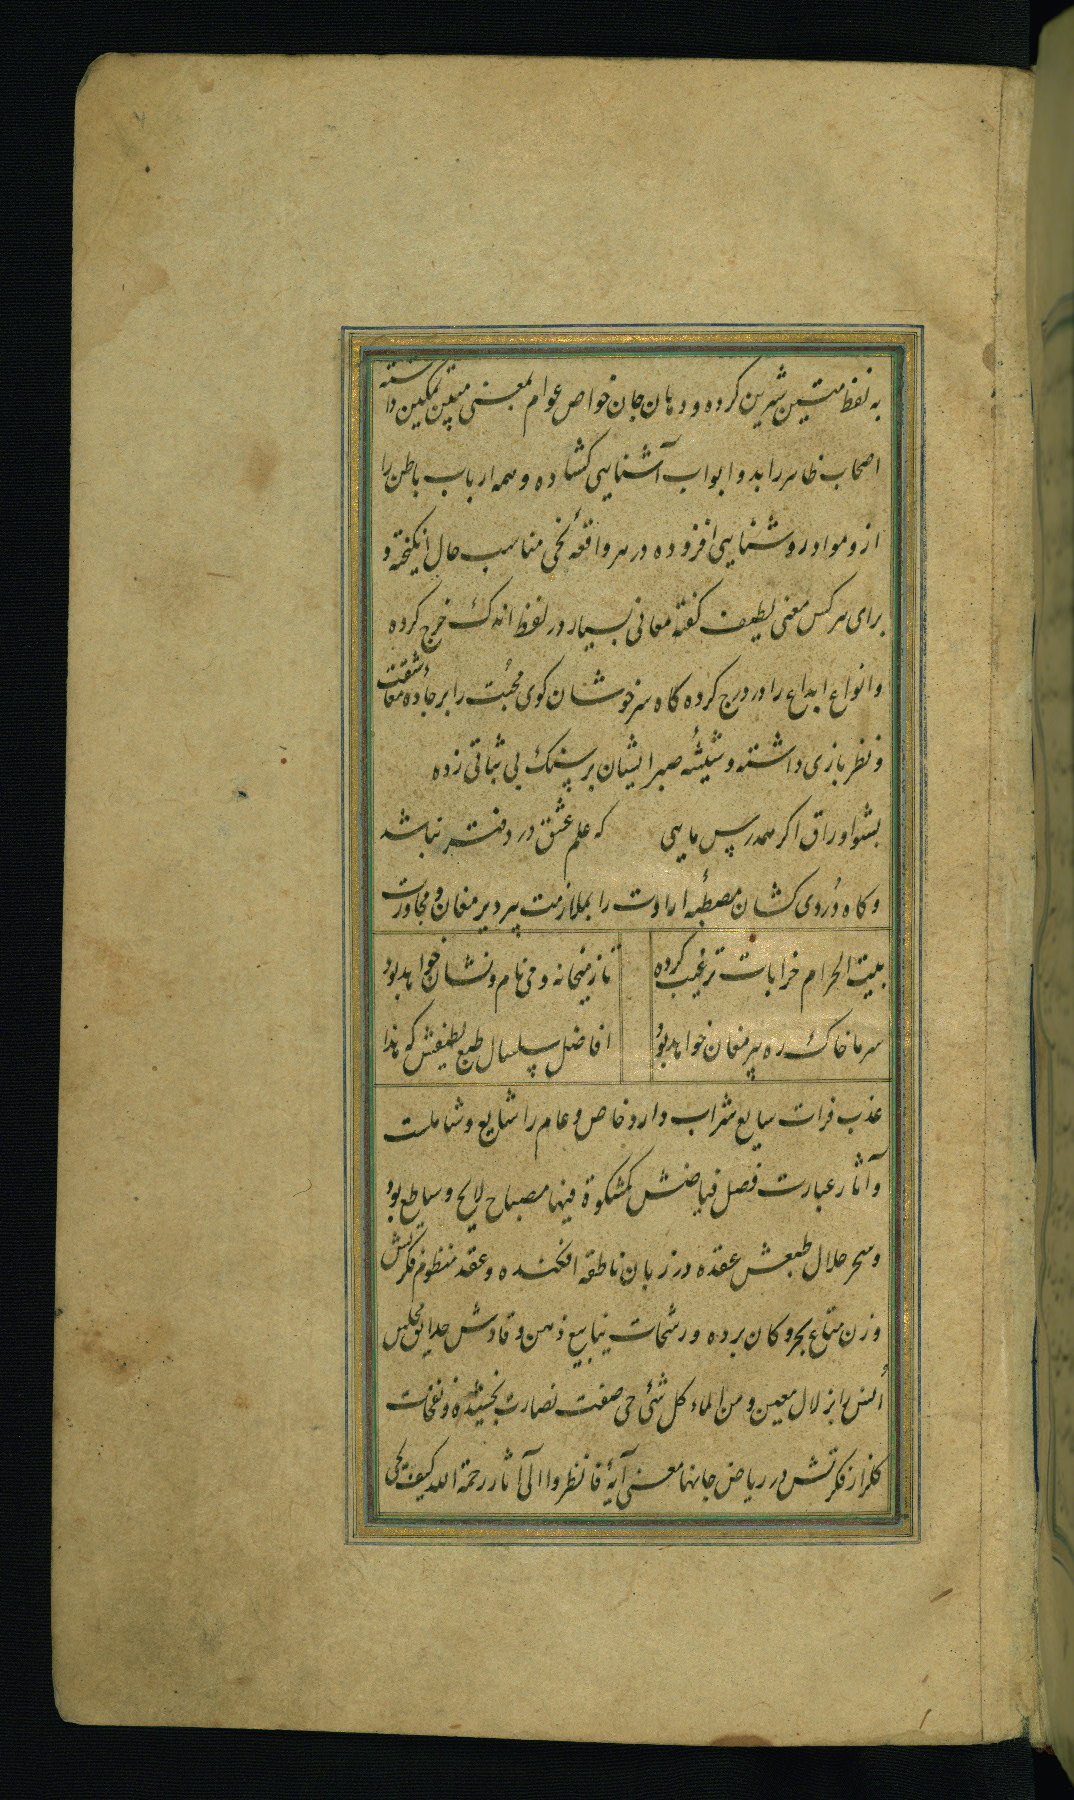 به لفظ متین شیرین کرده و دهان جان خواص عوام بمعنی مبین نمکین داشته
اصحاب ظاهر را بدو ابواب آشنایی کشاده و همه ارباب باطن را
ازو مواد روشنایی افزوده در هر واقعهٔ سخنی مناسب حال انکیخته و
برای هر کس معنی لطیف کفته معانی بسیار در لفظ اندک خرج کرده
و انواع ابداع را در درج کرده کاه سرخوشان کوی محبّت را بر جادّه معاشقت
و نظر بازی داشته و شیشهٔ صبر ایشان بر سنک بی ثباتی زده
بشو اوراق اکر همدرس مایی که علم عشق در دفتر نباشد
و کاه دُردی کشان مصطبهٔ ارادت را بملازمت پیر دیر مغان و مجاورت
بیت الحرام خرابات ترغیب کرده تا ز میخانه و می نام و نشان خواهد بود
سر ما خاک ره پیر مغان خواهد بود افاضل سلسال طبع لطیفش که هذا
عذب فرات سایع شراب دارد خاص و عام را شایع و شاملست
و آثار عبارت فصل فیاضش کمشکوة فیها مصباح لایح و ساطع بود
و سحر حلال طبعش عقده در زبان ناطقه افکنده و عقد منظوم فکرتش
وزن متاع بحر و کان برده و رشحات ینابیع ذهن وقادش حدایق مجلس
اُنس را بزلال معین و من الماء کل شئ حی صفت نضارت بخشیده و نفحات
کلزار فکرتش در ریاض جانها معنی آیهٔ فانظروا الی آثار رحمة الله کیف یحی